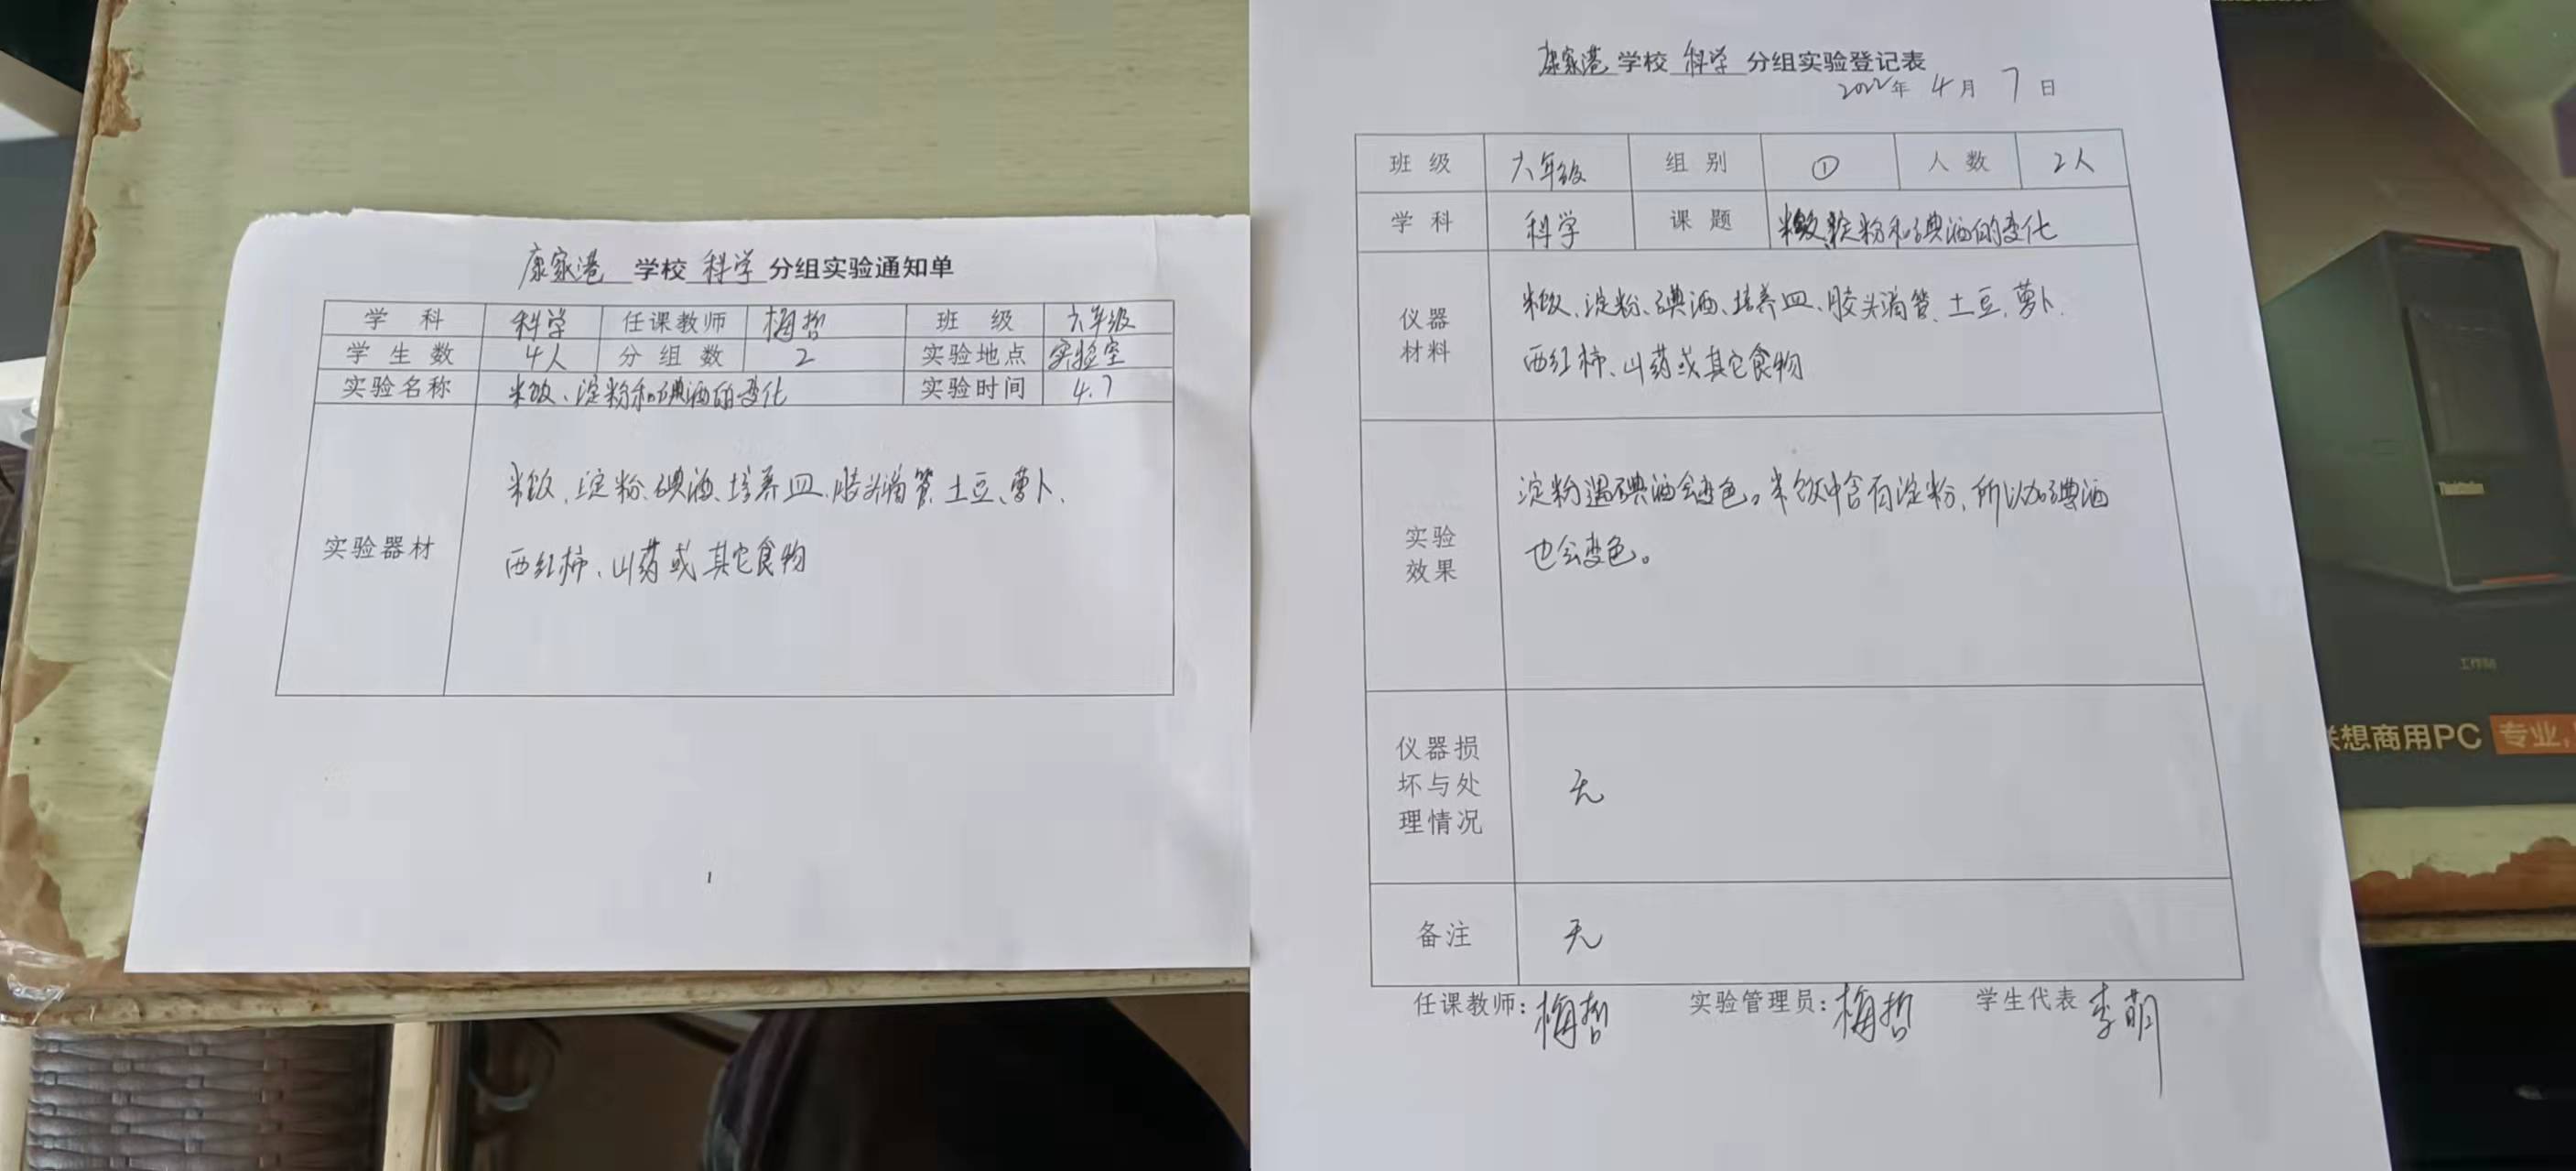 康家港 学校 科学 分组实验通知单
学科 科学 任课教师 梅哲 班级 六年级
学生数 4人 分组数 2 实验地点 实验室
实验名称 米饭、淀粉和碘酒的变化 实验时间 4.7
实验器材
米饭、淀粉、碘酒、培养皿、胶头滴管、土豆、萝卜、
西红柿、山药或其它食物
康家港 学校 科学 分组实验登记表
2022年 4月 7日
班级 六年级 组别 ① 人数 2人
学科 科学 课题 米饭、淀粉和碘酒的变化
仪器
材料
米饭、淀粉、碘酒、培养皿、胶头滴管、土豆、萝卜、
西红柿、山药或其它食物
实验
效果
淀粉遇碘酒会变色。米饭中含有淀粉,所以加碘酒
也会变色。
仪器损
坏与处
理情况
无
备注 无
任课教师:梅哲 实验管理员:梅哲 学生代表 李萌
工作站
联想商用PC 专业,